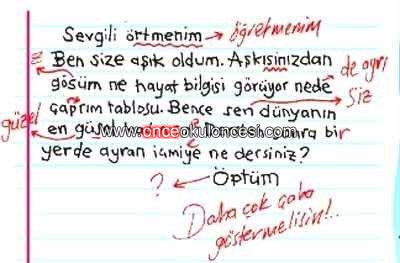 Sevgili örtmenim → öğretmenim
z Ben size aşık oldum. Aşkısinızdan
gösüm ne hayat bilgisi görüyor nede de ayrı
çaprım tablosu. Bence sen dünyanın siz
güzel en güsel
www.önceokulöncesi.com
sonra bir
yerde ayran içmiye ne dersiniz?
? ← Öptüm
Daha çok çaba
göstermelisin!..